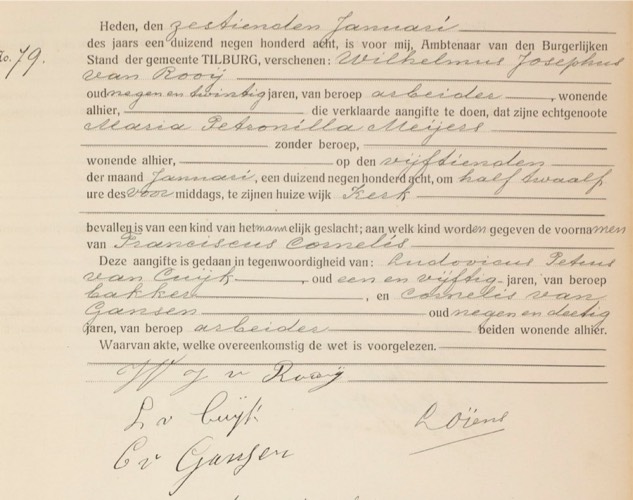 Heden, den zestienden Januari
des jaars een duizend negen honderd acht, is voor mij, Ambtenaar van den Burgerlijken
No. 79. Stand der gemeente TILBURG, verschenen: Wilhelmus Josephus
van Rooij
oud negen en twintig jaren, van beroep arbeider, wonende
alhier, die verklaarde aangifte te doen, dat zijne echtgenoote
Maria Petronilla Meijers
zonder beroep,
wonende alhier, op den vijftienden
der maand Januari, een duizend negen honderd acht, om half twaalf
ure des voor middags, te zijnen huize wijk Kerk
bevallen is van een kind van het mannelijk geslacht; aan welk kind worden gegeven de voornamen
van Franciscus Cornelis
Deze aangifte is gedaan in tegenwoordigheid van: Ludovicus Petrus
van Cuijk, oud een en vijftig jaren, van beroep
bakker, en Cornelis van
Gansen oud negen en dertig
jaren, van beroep arbeider beiden wonende alhier.
Waarvan akte, welke overeenkomstig de wet is voorgelezen.
W J v Rooij
L v Cuijk
C v Gansen